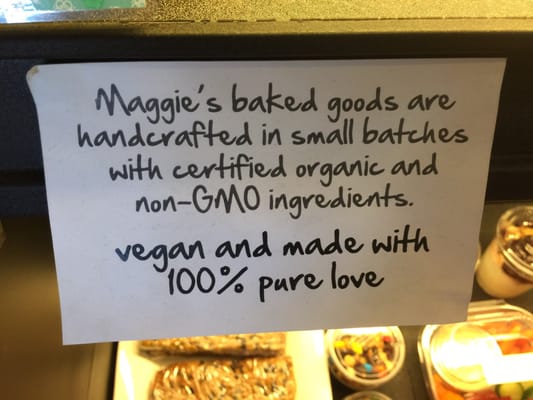 Maggie's baked goods are
handcrafted in small batches
with certified organic and
non-GMO ingredients.
vegan and made with
100% pure love